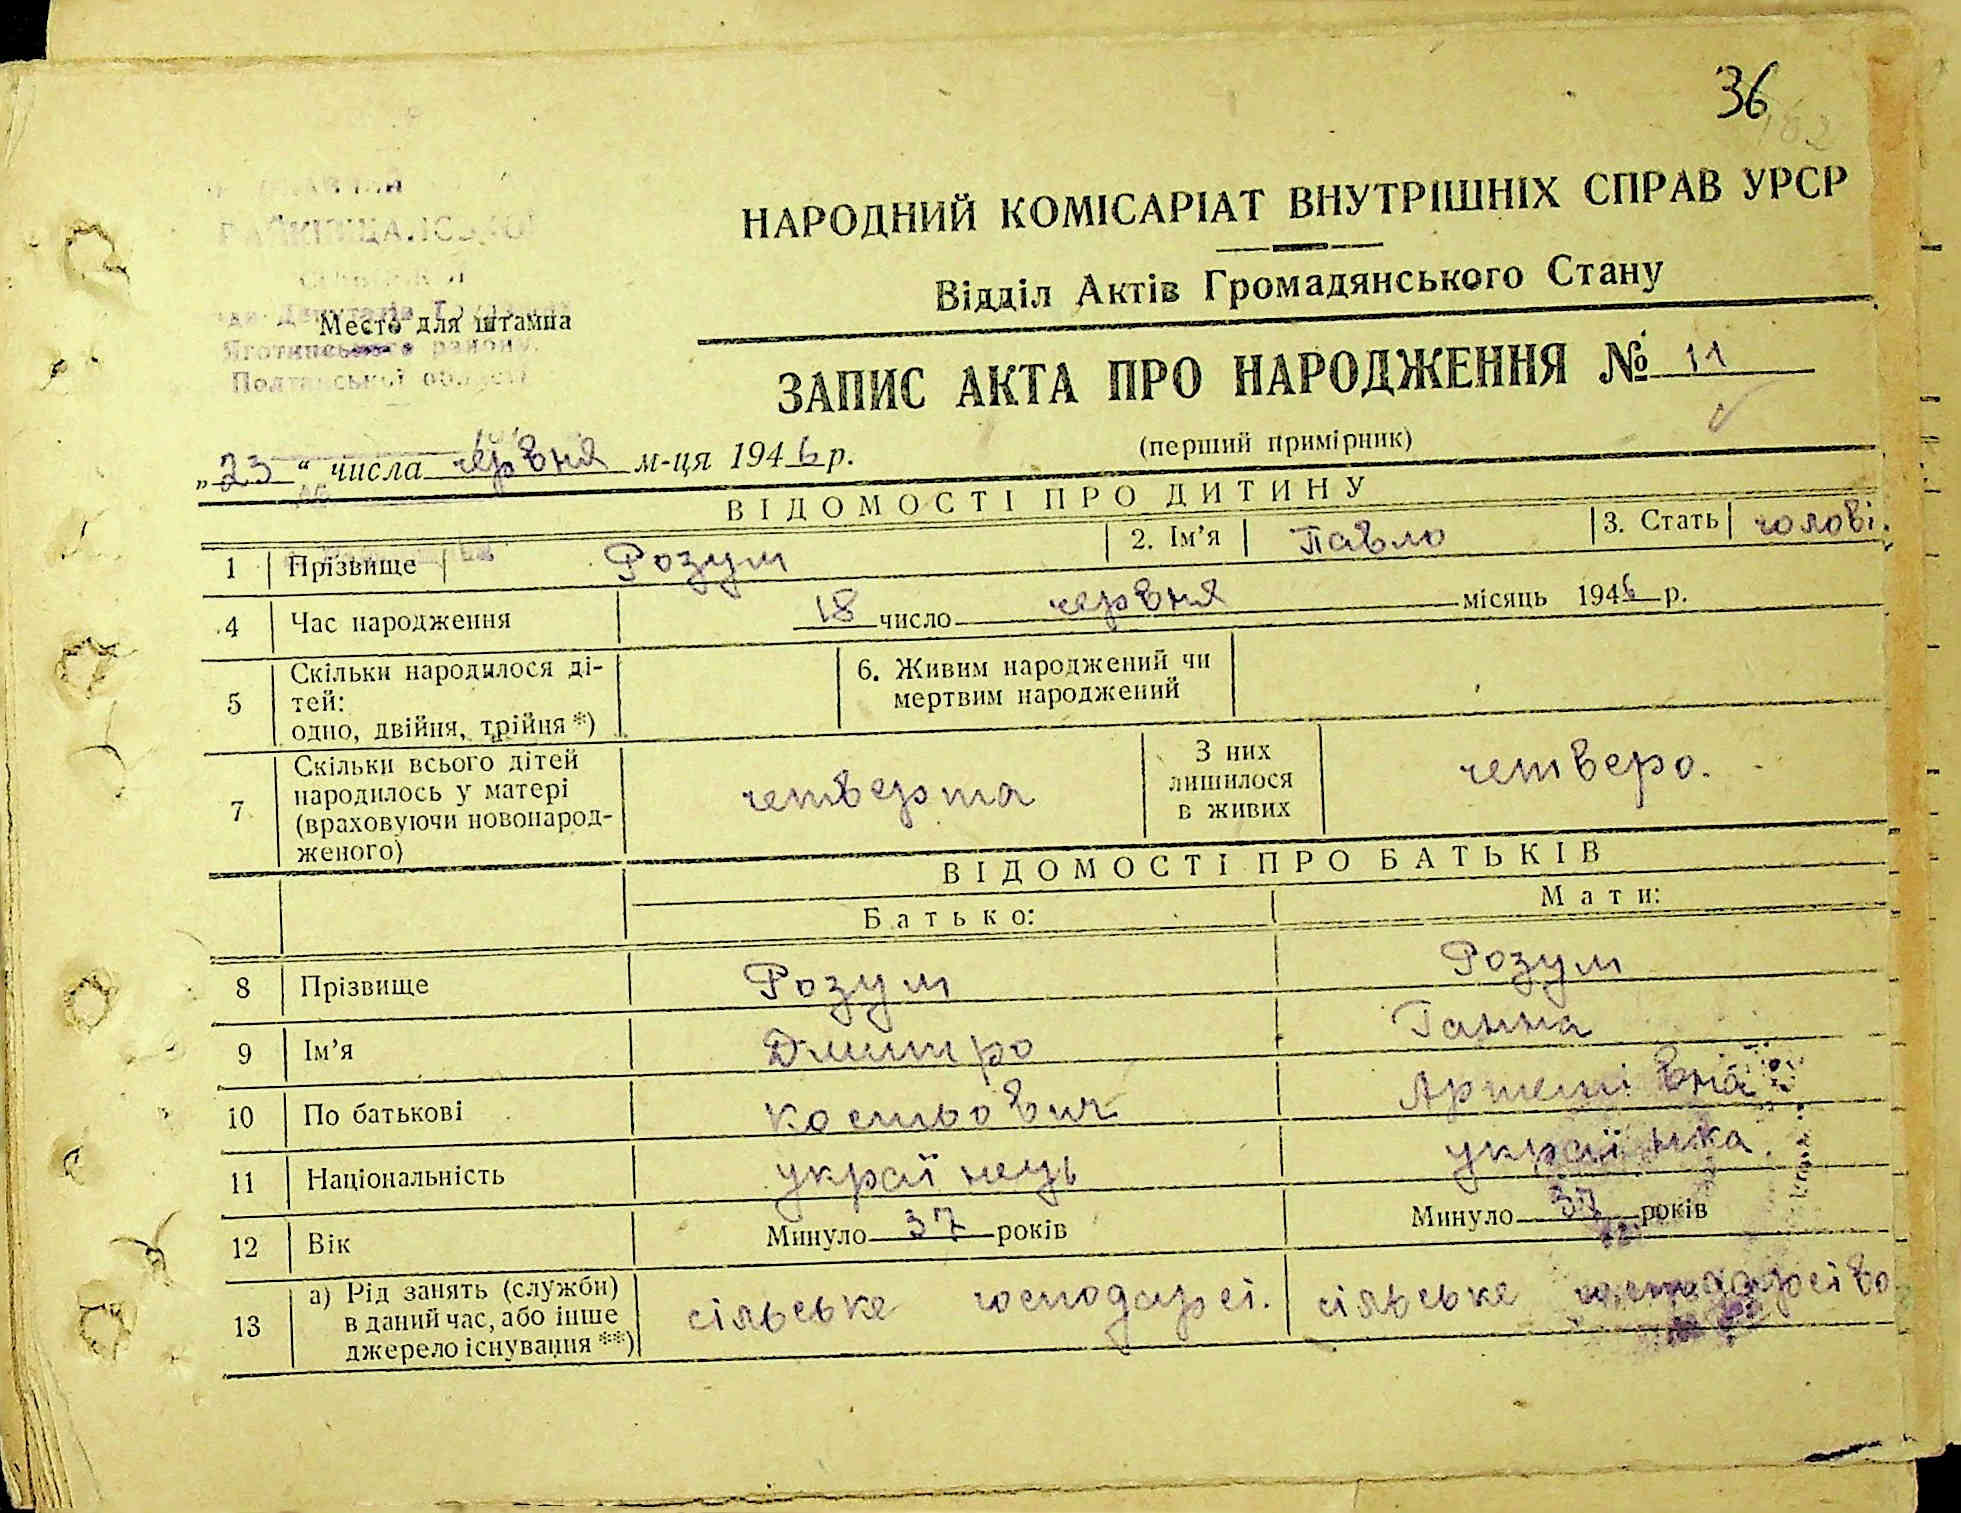 36
НАРОДНИЙ КОМІСАРІАТ ВНУТРІШНІХ СПРАВ УРСР
Відділ Актів Громадянського Стану
Место для штампа
Яготинського району.
Полтавської області
ЗАПИС АКТА ПРО НАРОДЖЕННЯ № 11
(перший примірник)
„23“ числа червня м-ця 1946 р.
ВІДОМОСТІ ПРО ДИТИНУ
1 Прізвище Розум 2. Ім’я Павло 3. Стать чолові.
4 Час народження 18 число червня місяць 1946 р.
5 Скільки народилося ді-
тей:
одно, двійня, трійня *)
6. Живим народжений чи
мертвим народжений
7 Скільки всього дітей
народилось у матері
(враховуючи новонарод-
женого)
четверта
З них
лишилося
в живих
четверо.
ВІДОМОСТІ ПРО БАТЬКІВ
Батько: Мати:
8 Прізвище Розум Розум
9 Ім’я Дмитро Ганна
10 По батькові Костьович Артемівна
11 Національність українець українка
12 Вік Минуло 37 років Минуло 37 років
13 а) Рід занять (служби)
в даний час, або інше
джерело існування **)
сільське господарсі. сільське господарсіво